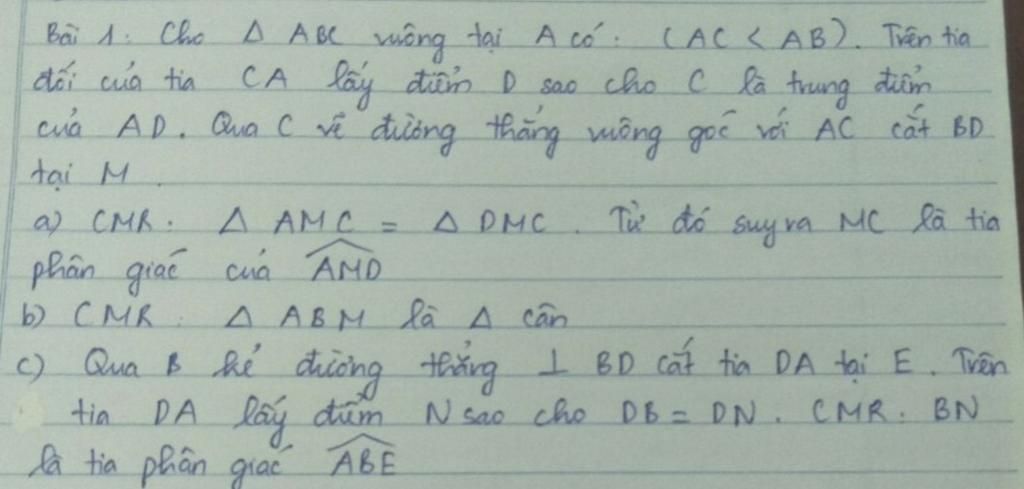 Bài 1: Cho Δ ABC vuông tại A có: (AC < AB). Trên tia
đối của tia CA lấy điểm D sao cho C là trung điểm
của AD. Qua C vẽ đường thẳng vuông góc với AC cắt BD
tại M.
a) CMR: Δ AMC = Δ DMC. Từ đó suy ra MC là tia
phân giác của \widehat{AMD}
b) CMR: Δ ABM là Δ cân
c) Qua B kẻ đường thẳng ⊥ BD cắt tia DA tại E. Trên
tia DA lấy điểm N sao cho DB = DN. CMR: BN
là tia phân giác \widehat{ABE}